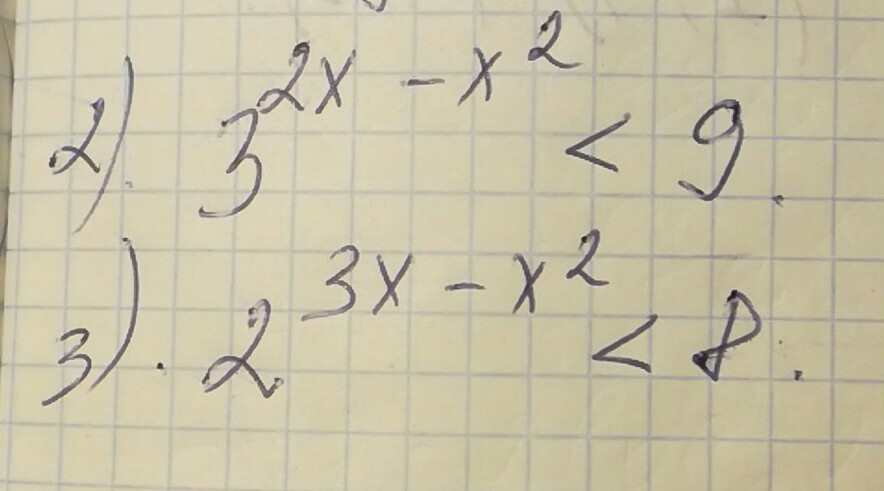 2). 3^{2x - x^2} < 9.
3). 2^{3x - x^2} < 8.